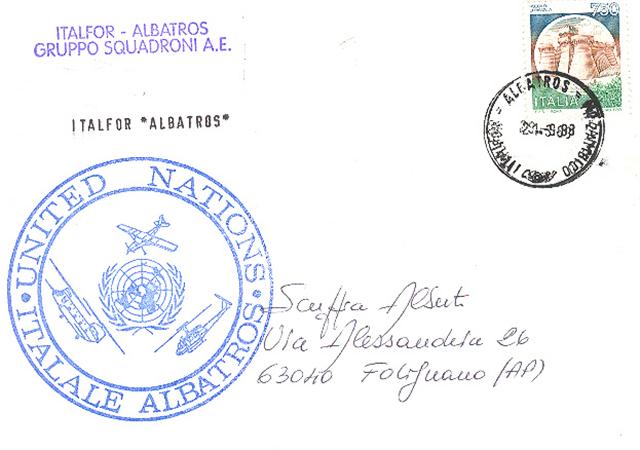 ITALFOR - ALBATROS
GRUPPO SQUADRONI A.E.
ITALFOR "ALBATROS"
750
ITALIA
= ALBATROS = MOZAMBICO
UNITED NATIONS
ITALALE ALBATROS
Alberti
Via Alessandria 26
63040 Folignano (AP)